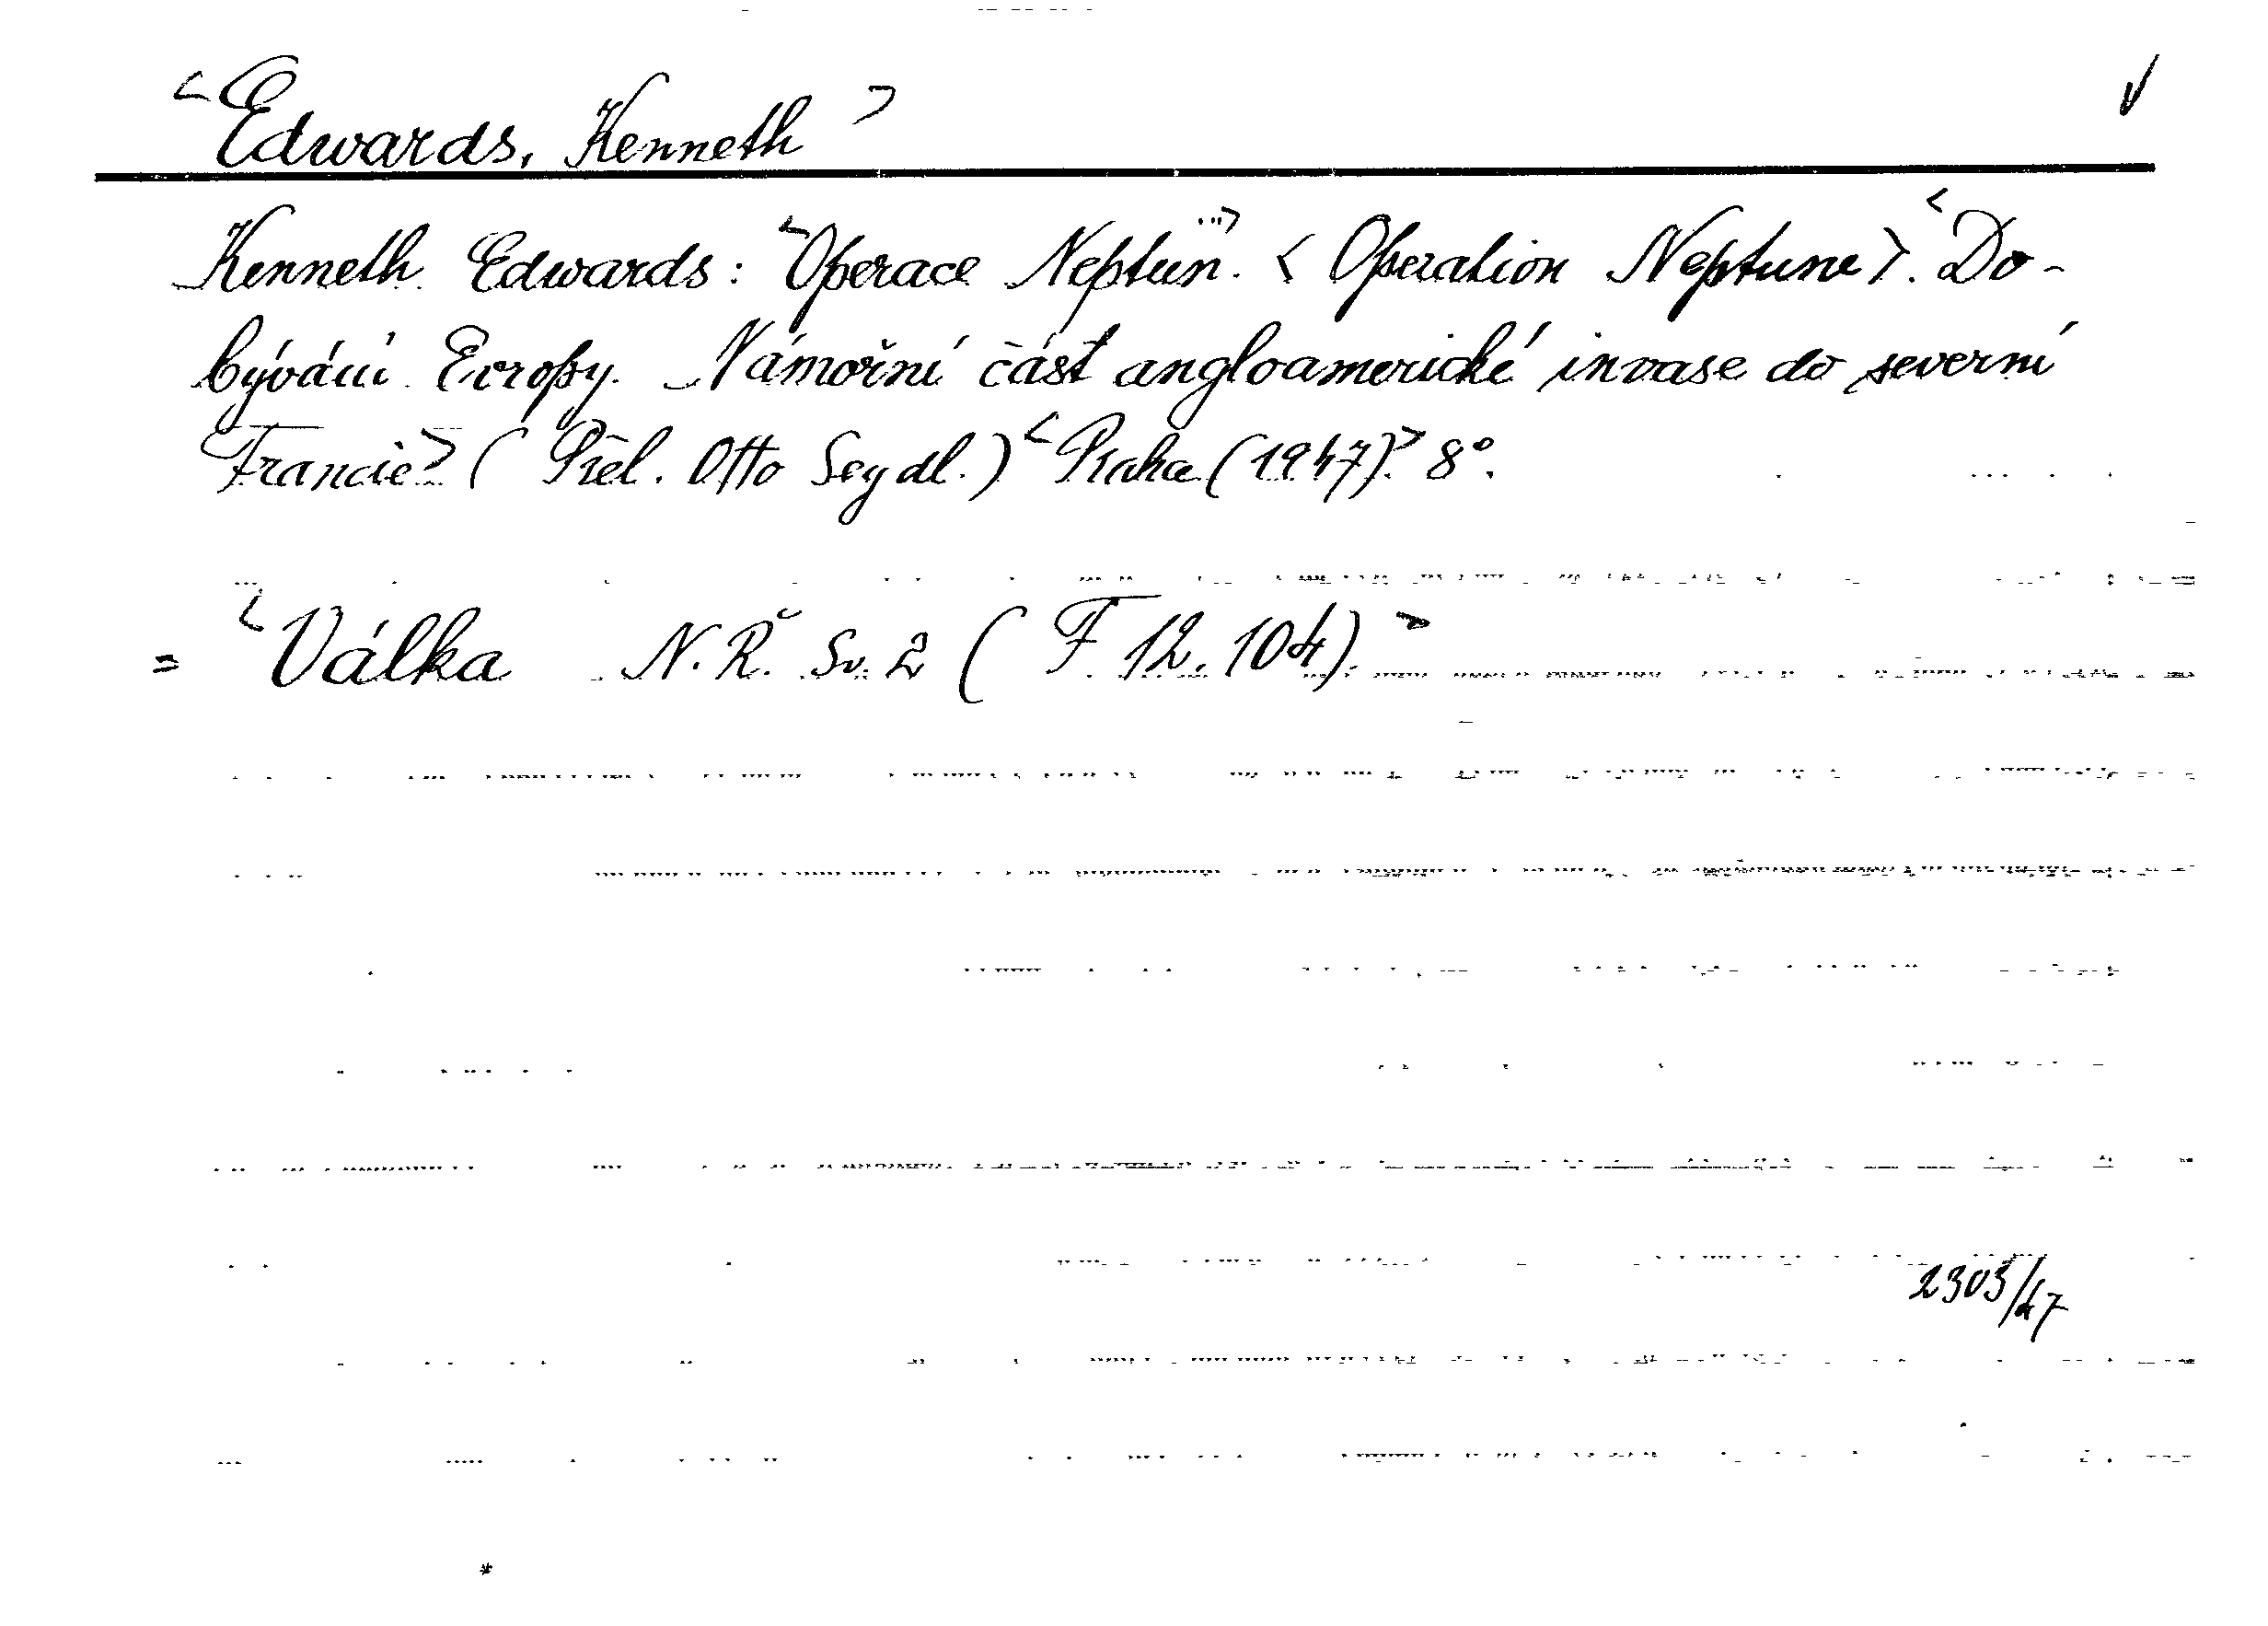 <Edwards, Kenneth>
Kenneth Edwards: <Operace Neptun...>. <Operation Neptune>. <Do-
bývání Evropy. Námořní část angloamerické invase do severní
Francie> (Přel. Otto Seydl.) <Praha (1947).> 8°.
= <Válka N. Ř. Sv. 2 (F 12.104).>
2305/47